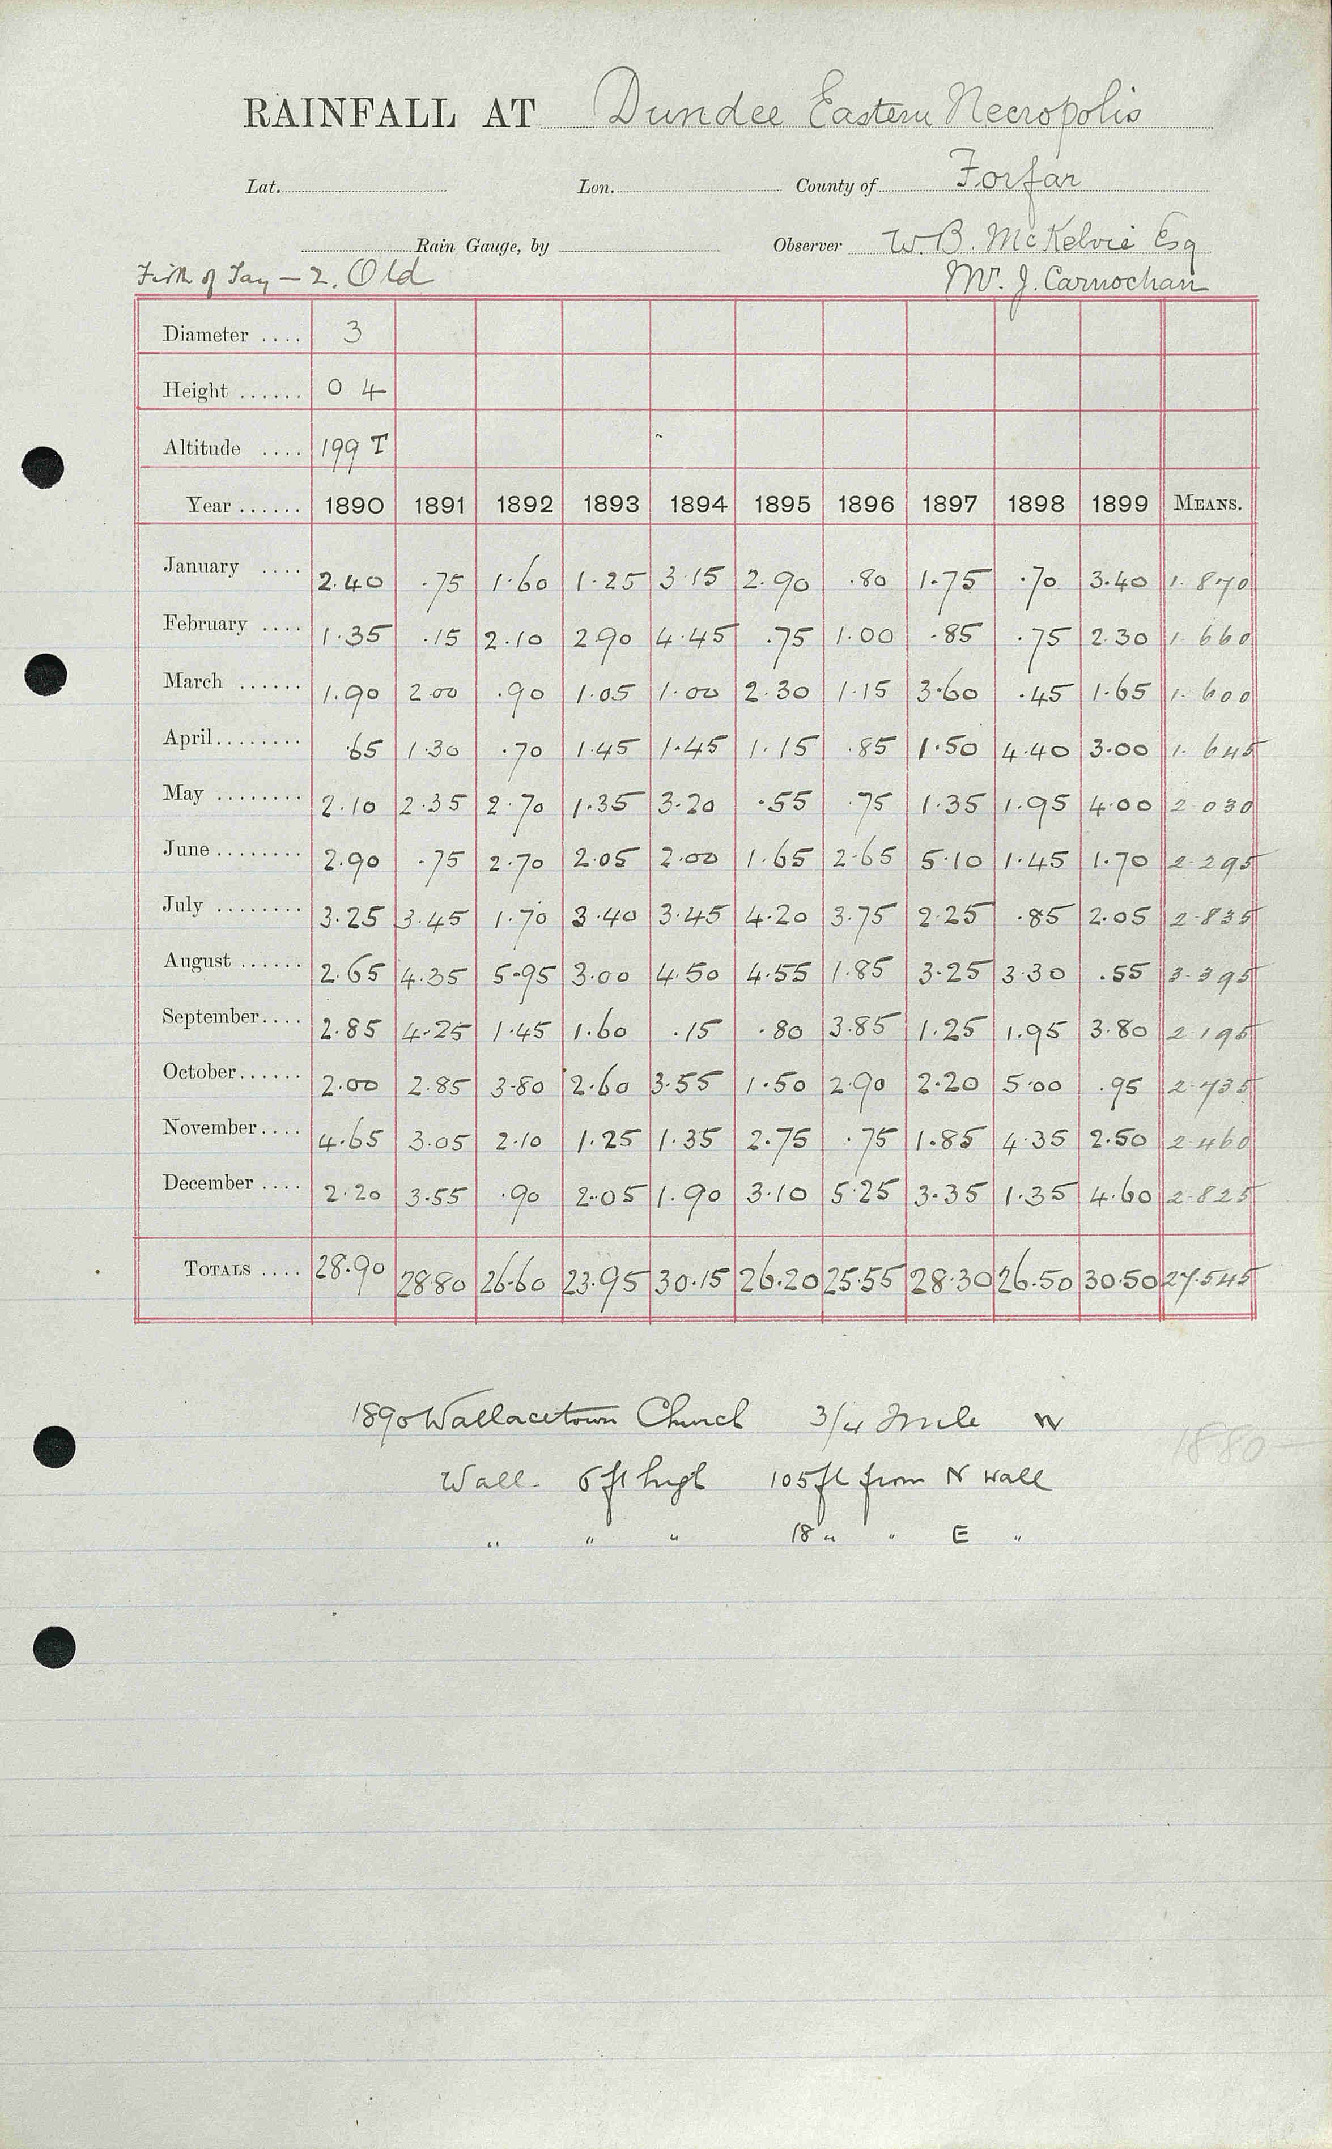 RAINFALL AT Dundee Eastern Necropolis
Lat. Lon. County of Forfar
Rain Gauge, by Observer W. B. McKelvie Esq
Firth of Tay — 2. Old Mr. J. Carnochan
Diameter .... 3
Height ...... 0 4
Altitude .... 199 T
Year ...... 1890 1891 1892 1893 1894 1895 1896 1897 1898 1899 MEANS.
January .... 2.40 .75 1.60 1.25 3.15 2.90 .80 1.75 .70 3.40 1.870
February .... 1.35 .15 2.10 2.90 4.45 .75 1.00 .85 .75 2.30 1.660
March ...... 1.90 2.00 .90 1.05 1.00 2.30 1.15 3.60 .45 1.65 1.600
April........ .65 1.30 .70 1.45 1.45 1.15 .85 1.50 4.40 3.00 1.645
May ........ 2.10 2.35 2.70 1.35 3.20 .55 .75 1.35 1.95 4.00 2.030
June........ 2.90 .75 2.70 2.05 2.00 1.65 2.65 5.10 1.45 1.70 2.295
July ........ 3.25 3.45 1.70 3.40 3.45 4.20 3.75 2.25 .85 2.05 2.835
August ...... 2.65 4.35 5.95 3.00 4.50 4.55 1.85 3.25 3.30 .55 3.395
September.... 2.85 4.25 1.45 1.60 .15 .80 3.85 1.25 1.95 3.80 2.195
October...... 2.00 2.85 3.80 2.60 3.55 1.50 2.90 2.20 5.00 .95 2.735
November.... 4.65 3.05 2.10 1.25 1.35 2.75 .75 1.85 4.35 2.50 2.460
December .... 2.20 3.55 .90 2.05 1.90 3.10 5.25 3.35 1.35 4.60 2.825
TOTALS .... 28.90 28.80 26.60 23.95 30.15 26.20 25.55 28.30 26.50 30.50 27.545
1890 Wallacetown Church 3/4 Mile W
1880 —
Wall. 6 ft high 105 ft from N wall
" " " 18 " " E "